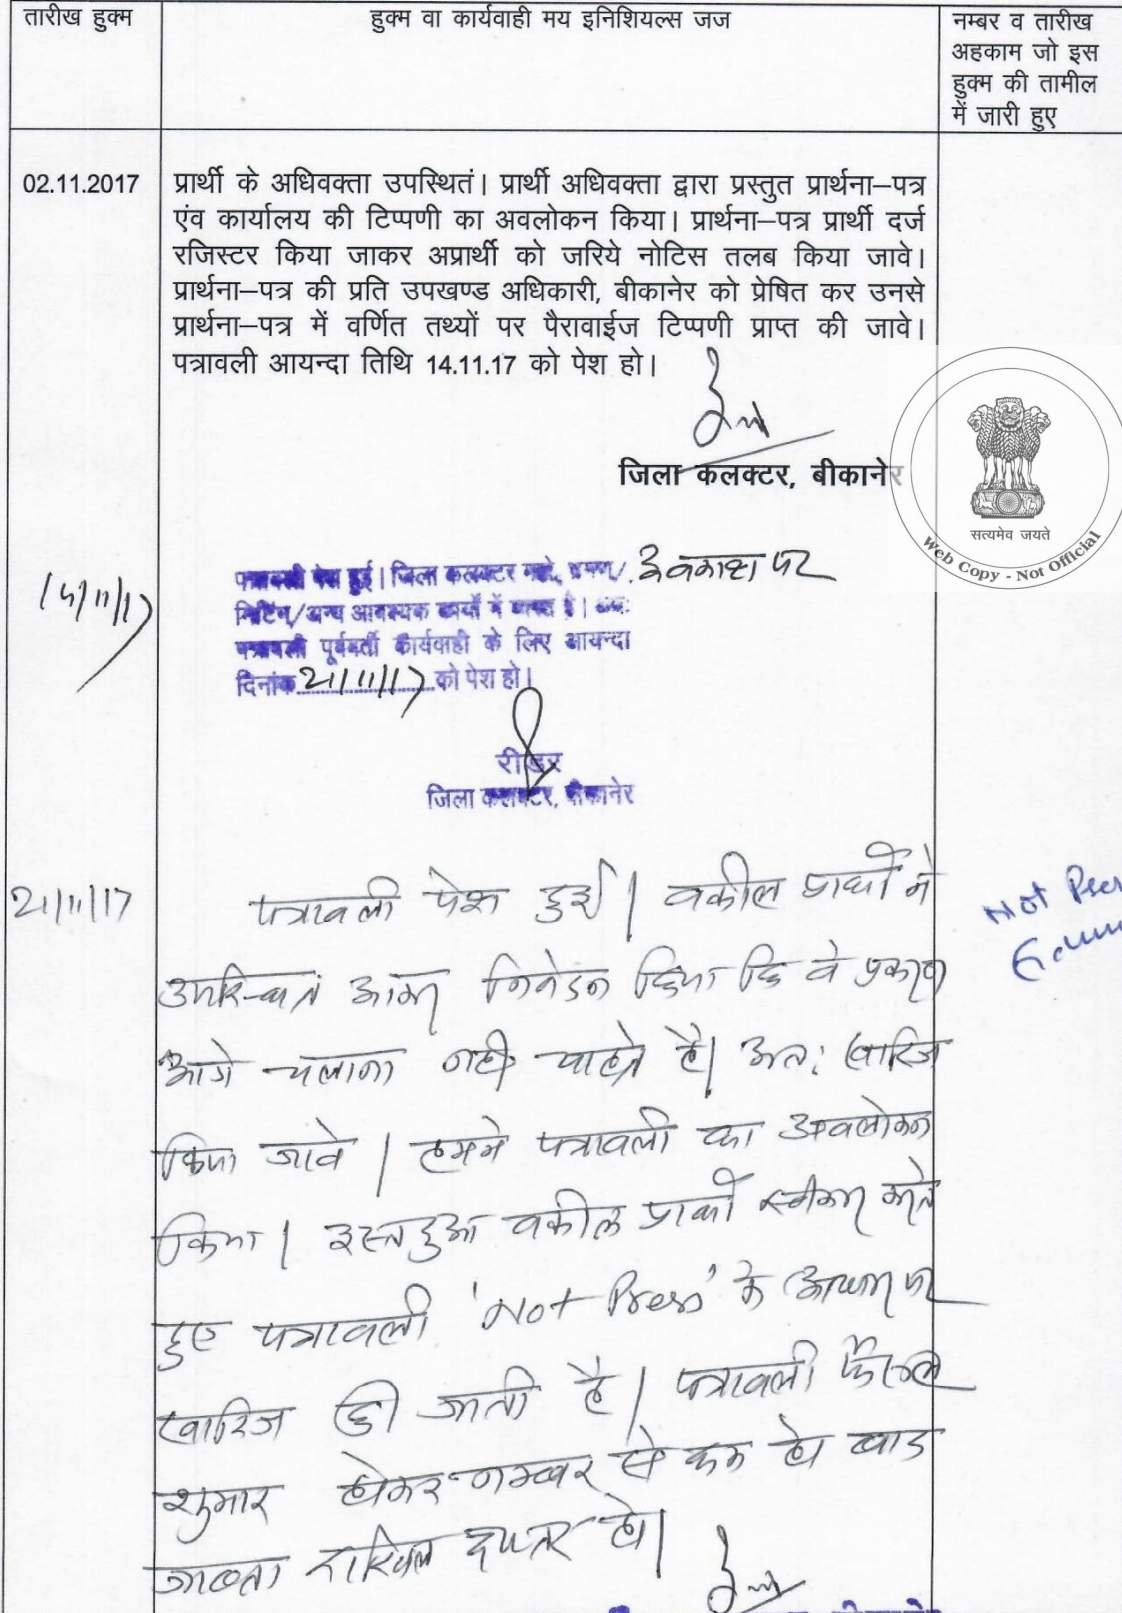 तारीख हुक्म
हुक्म वा कार्यवाही मय इनिशियल्स जज
नम्बर व तारीख
अहकाम जो इस
हुक्म की तामील
में जारी हुए
02.11.2017
प्रार्थी के अधिवक्ता उपस्थितं। प्रार्थी अधिवक्ता द्वारा प्रस्तुत प्रार्थना–पत्र
एंव कार्यालय की टिप्पणी का अवलोकन किया। प्रार्थना–पत्र प्रार्थी दर्ज
रजिस्टर किया जाकर अप्रार्थी को जरिये नोटिस तलब किया जावे।
प्रार्थना–पत्र की प्रति उपखण्ड अधिकारी, बीकानेर को प्रेषित कर उनसे
प्रार्थना–पत्र में वर्णित तथ्यों पर पैरावाईज टिप्पणी प्राप्त की जावे।
पत्रावली आयन्दा तिथि 14.11.17 को पेश हो।
जिला कलक्टर, बीकानेर
सत्यमेव जयते
Web Copy - Not Official
14/11/17
पत्रावली पेश हुई। जिला कलक्टर महो. भ्रमण/ अवकाश पर
मिटिंग/अन्य आवश्यक कार्यों में व्यस्त है। अतः
पत्रावली पूर्ववर्ती कार्यवाही के लिए आयन्दा
दिनांक 21/11/17 को पेश हो।
रीडर
जिला कलक्टर, बीकानेर
21/11/17
पत्रावली पेश हुई। वकील प्रार्थी ने
उपस्थित आकर निवेदन किया कि वे प्रकरण
आगे चलाना नही चाहते है। अतः खारिज
किया जावे। हमने पत्रावली का अवलोकन
किया। वकील प्रार्थी स्वीकार करते
हुए पत्रावली 'Not Press' के आधार पर
खारिज की जाती है। पत्रावली फैसल
शुमार होकर नम्बर से कम हो बाद
जाब्ता दाखिल दफ्तर हो।
Not